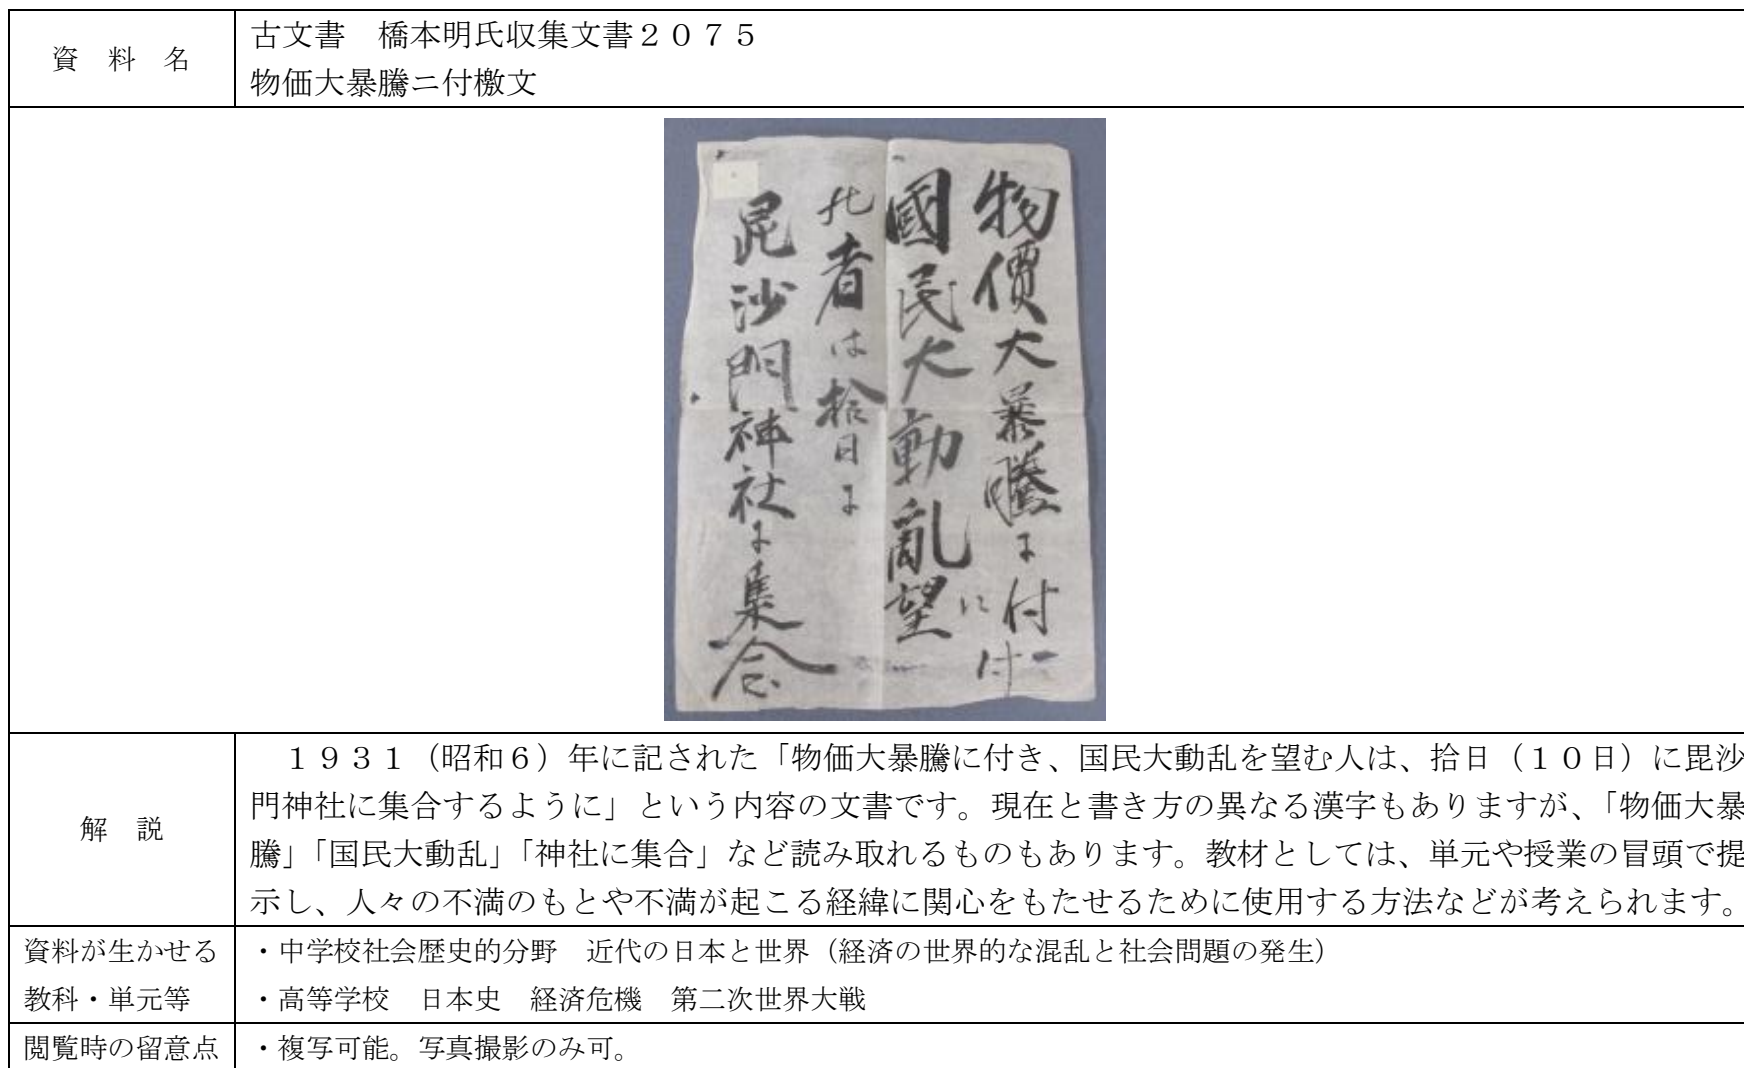 資料名
古文書　橋本明氏収集文書２０７５
物価大暴騰ニ付檄文
物價大暴騰に付
に付
國民大動亂望
此者は拾日に
毘沙門神社に集合
解説
１９３１（昭和６）年に記された「物価大暴騰に付き、国民大動乱を望む人は、拾日（１０日）に毘沙
門神社に集合するように」という内容の文書です。現在と書き方の異なる漢字もありますが、「物価大暴
騰」「国民大動乱」「神社に集合」など読み取れるものもあります。教材としては、単元や授業の冒頭で提
示し、人々の不満のもとや不満が起こる経緯に関心をもたせるために使用する方法などが考えられます。
資料が生かせる
教科・単元等
・中学校社会歴史的分野　近代の日本と世界（経済の世界的な混乱と社会問題の発生）
・高等学校　日本史　経済危機　第二次世界大戦
閲覧時の留意点
・複写可能。写真撮影のみ可。